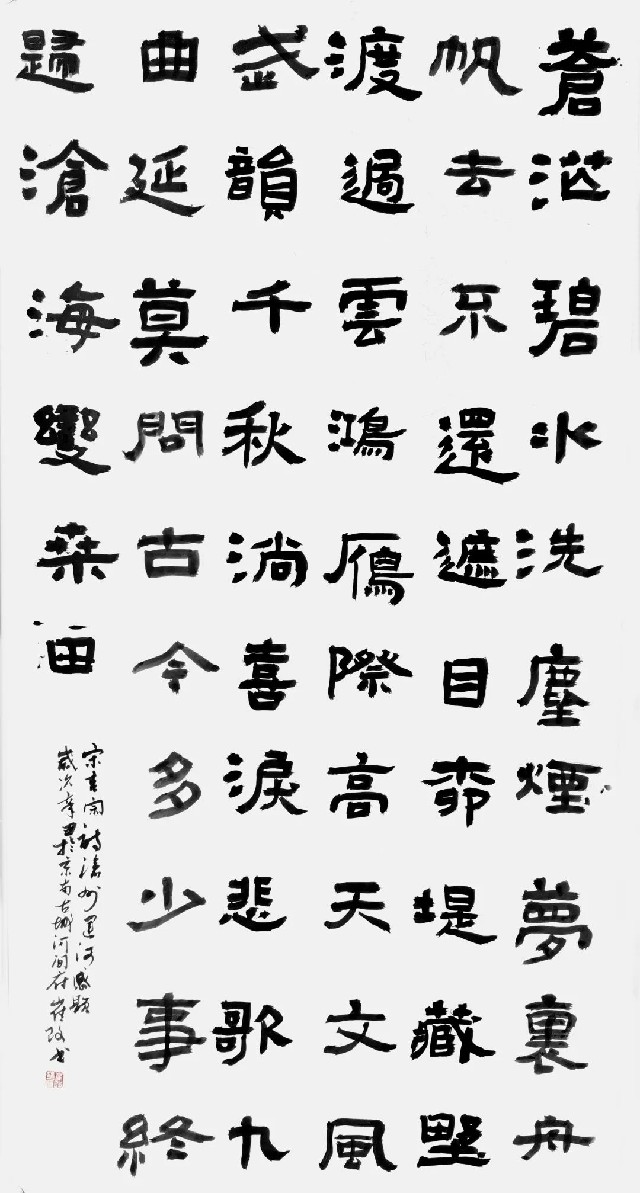 蒼茫碧水洗塵煙夢裏舟
帆去不還遮目桺堤藏野
渡過雲鴻鴈際高天文風
武韻千秋淌喜淚悲歌九
曲延莫問古今多少事終
歸滄海變桑田
詩滄州運河感題
歲次辛丑於京南古城河間府崔書